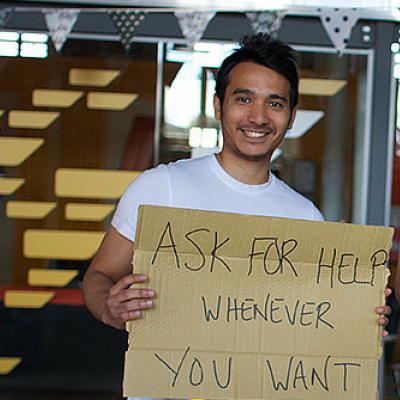 ASK FOR HELP
WHENEVER
YOU WANT